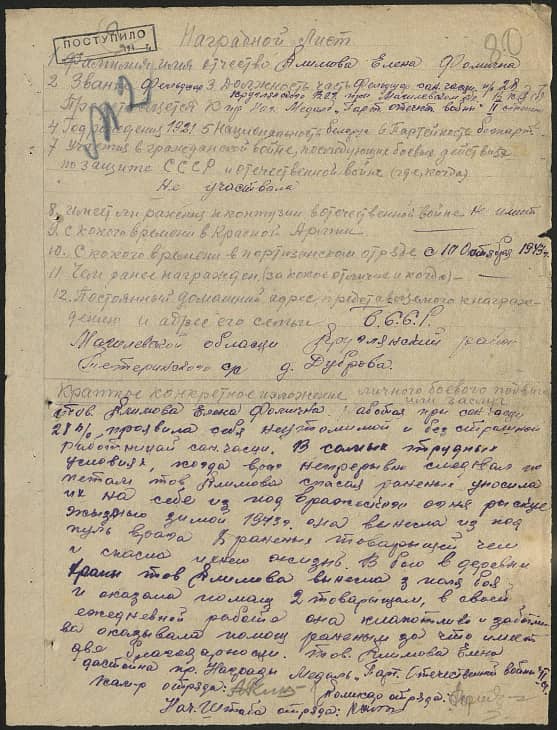 ПОСТУПИЛО
80
Наградной Лист
1. Фамилия имя отчество Алимова Елена Фомична
2 Звание 3 Должность часть сан.части 28
Представляется к пр. Наг. Медаль "Парт. отечест войны" II степени
4 Год рождения 1921 5 Национальность белорус 6 Партейность безпарт
7 Участия в гражданской войне, последующие боевые действия
по защите С С С Р и отечественной войне (где, когда)
Не участвовала
8. имеет ли ранения и контузии в отечественной войне Не имеет
9. С какого времени в Красной Армии
10. С какого времени в портизанском отряде с 10 Октября 1943г.
11. Чем ранее награжден (за какое отличие и когда) —
12. Постоянный домашний адрес представляемого к награж-
дению и адрес его семьи Б.С.С.Р.
Магилевской области район
Тетеринского с/с д. Дуброва.
Краткое конкретное изложение личного боевого подвига
или заслуг
Тов. Алимова Елена Фомична работая при сан.части
28 проявила себя неутомимой и безстрашной
работницай сан.части. В самых трудных
условиях когда враг непрерывно
тов Алимова спасая раненых уносила
их на себе из под вражеского огня рискуя
жызнью зимой 1943г. она вынесла из под
пуль врага раненых товарыщей чем
и спасла ихню жизнь. В бою в деревни
тов Алимова вынесла з поля боя
и оказала помощ 2 товарыщам, в своей
ежедневной работе она и заботли
ва оказывала помощ раненым за что имеет
две благодарности. Тов. Алимова Елена
дастойна пр. Награды Медаль "Парт. Отечественой войны" II ст.
Ком-р отряда: Комисар отряда:
Нач. Штаба отряда: